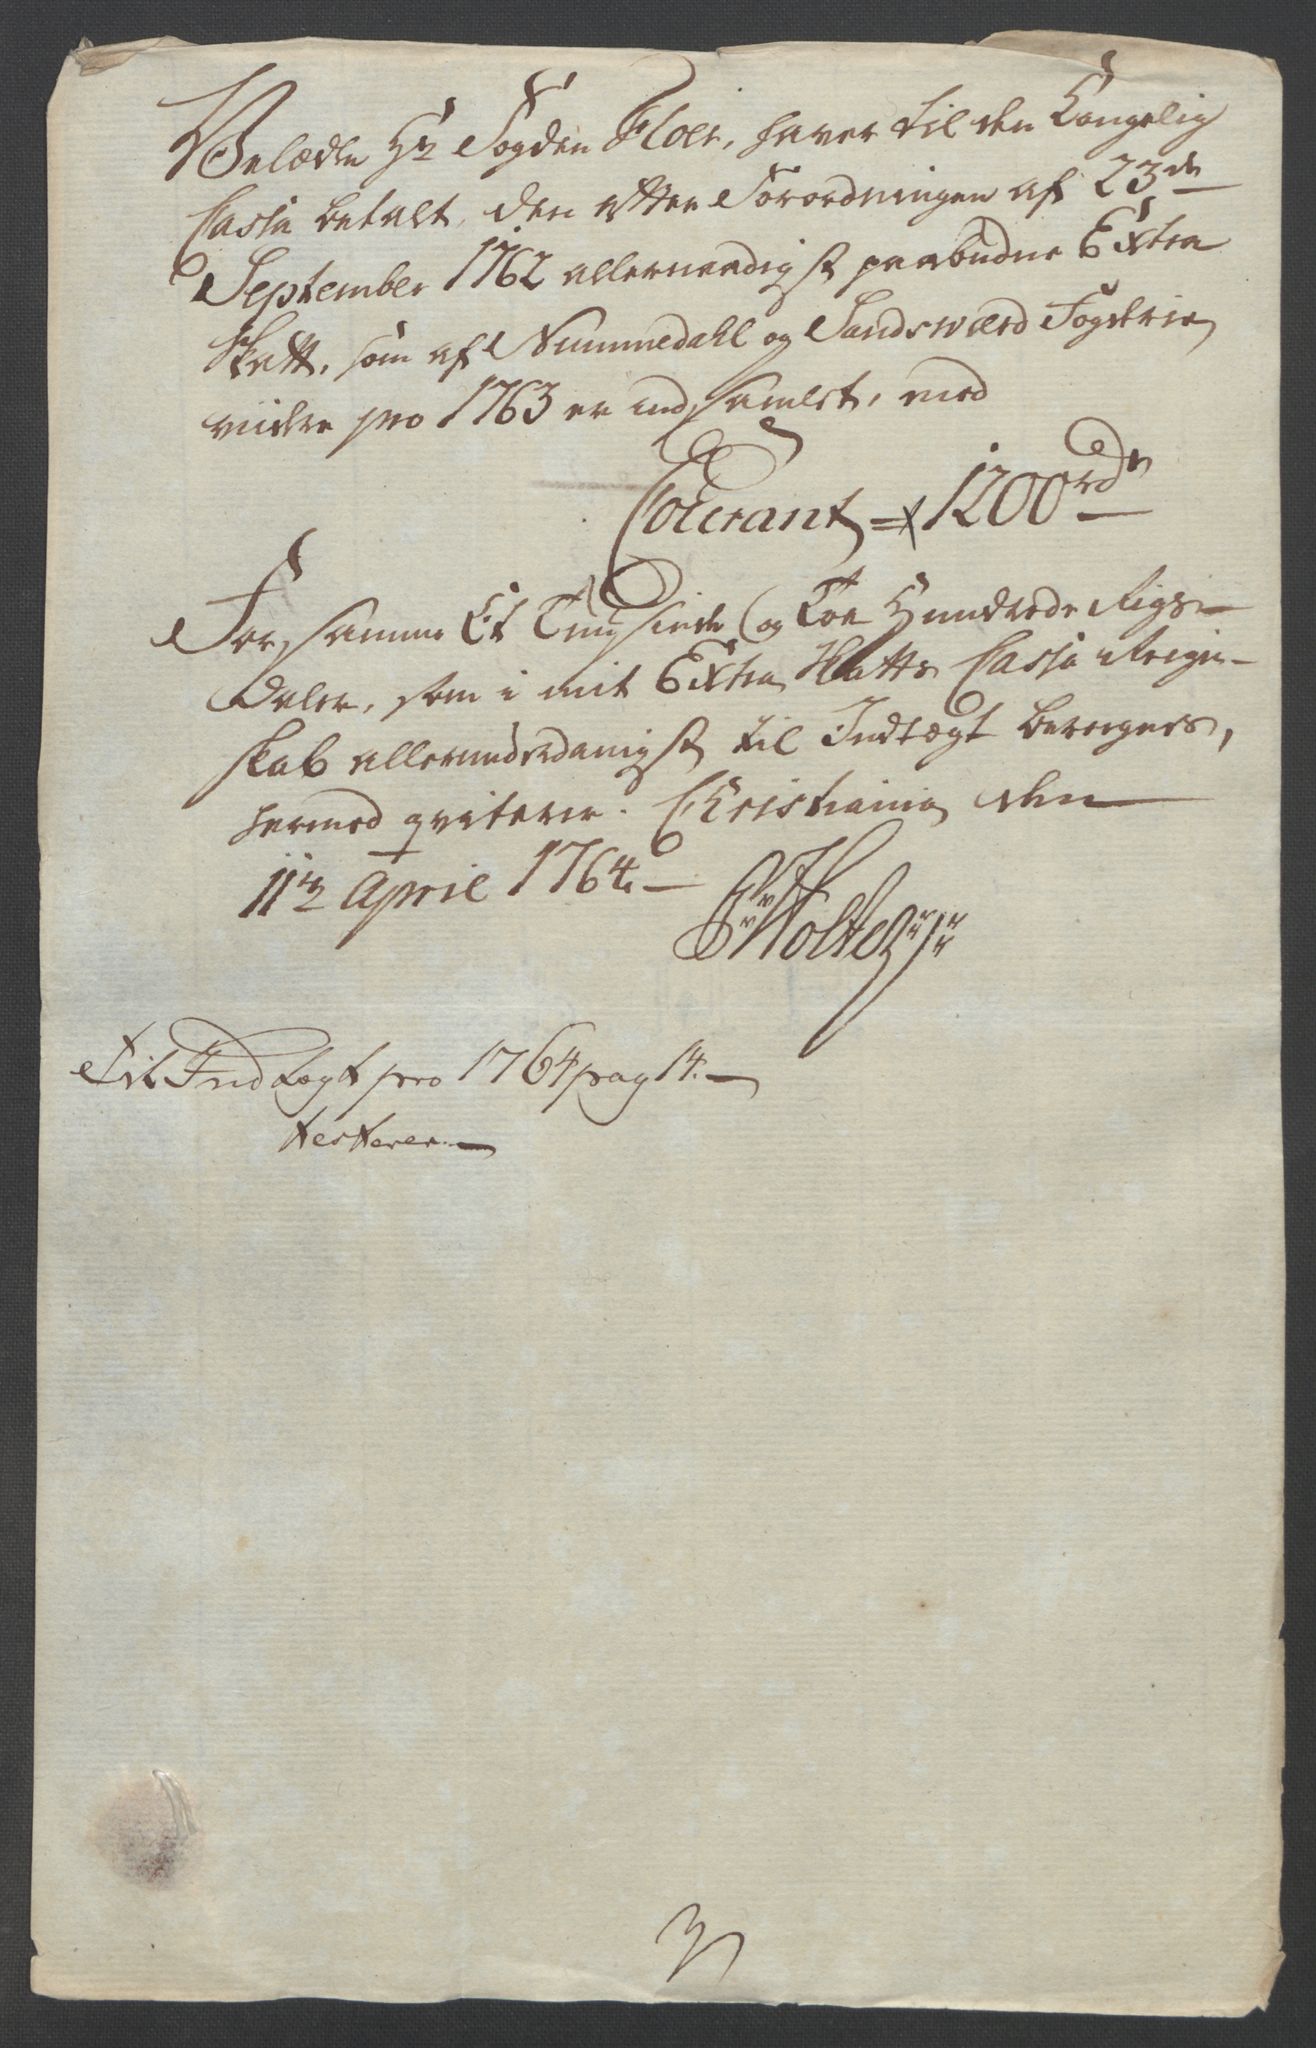 Velædle Hr Fogden Floer, haver til den Kongelig
Cassa betalt, den efter Forordningen af 23de
September 1762 allernaadigst paabudne Extra
Skatt, som af Nummedahl og Sandsværd Fogderie
viidere pro 1763 er indsamlet, med
Courant = 1200 rdr
For samme Et Tuusinde og Toe Hundrede Rigs-
Daler, som i mit Extra Skatts Cassa Regn-
skab allerunderdanigst til Indtægt beregnes,
hermed qviterer. Christiania den
11te April 1764.
Holter
Til Indtægt pro 1764 pag 14.
testerer.
3